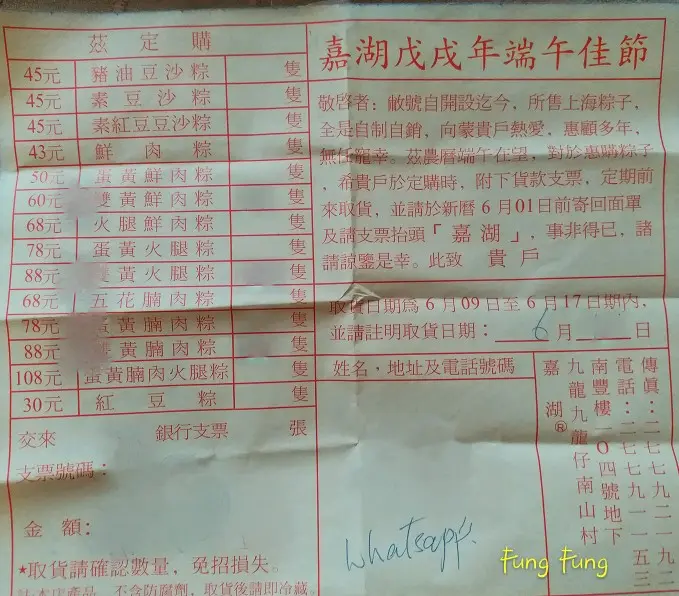 茲定購
45元 豬油豆沙粽 隻
45元 素豆沙粽 隻
45元 素紅豆豆沙粽 隻
43元 鮮肉粽 隻
50元 蛋黃鮮肉粽 隻
60元 雙黃鮮肉粽 隻
68元 火腿鮮肉粽 隻
78元 蛋黃火腿粽 隻
88元 雙黃火腿粽 隻
68元 五花腩肉粽 隻
78元 蛋黃腩肉粽 隻
88元 雙黃腩肉粽 隻
108元 蛋黃腩肉火腿粽 隻
30元 紅豆粽 隻
交來 銀行支票 張
支票號碼:
金額:
★取貨請確認數量,免招損失。
本店產品,不含防腐劑,取貨後請即冷藏。
嘉湖戊戌年端午佳節
敬啓者:敝號自開設迄今,所售上海粽子,
全是自制自銷,向蒙貴戶熱愛,惠顧多年,
無任寵幸。茲農曆端午在望,對於惠購粽子
,希貴戶於定購時,附下貨款支票,定期前
來取貨,並請於新曆6月01日前寄回面單
及請支票抬頭「嘉湖」,事非得已,諸
請諒鑒是幸。此致 貴戶
取貨日期為6月09日至6月17日期內,
並請註明取貨日期: 6 月 日
姓名,地址及電話號碼
whatsapp
傳真:二七七九二一九二
電話:二七七九一一五三
南豐樓一〇四號地下
九龍九龍仔南山村
嘉湖®
Fung Fung